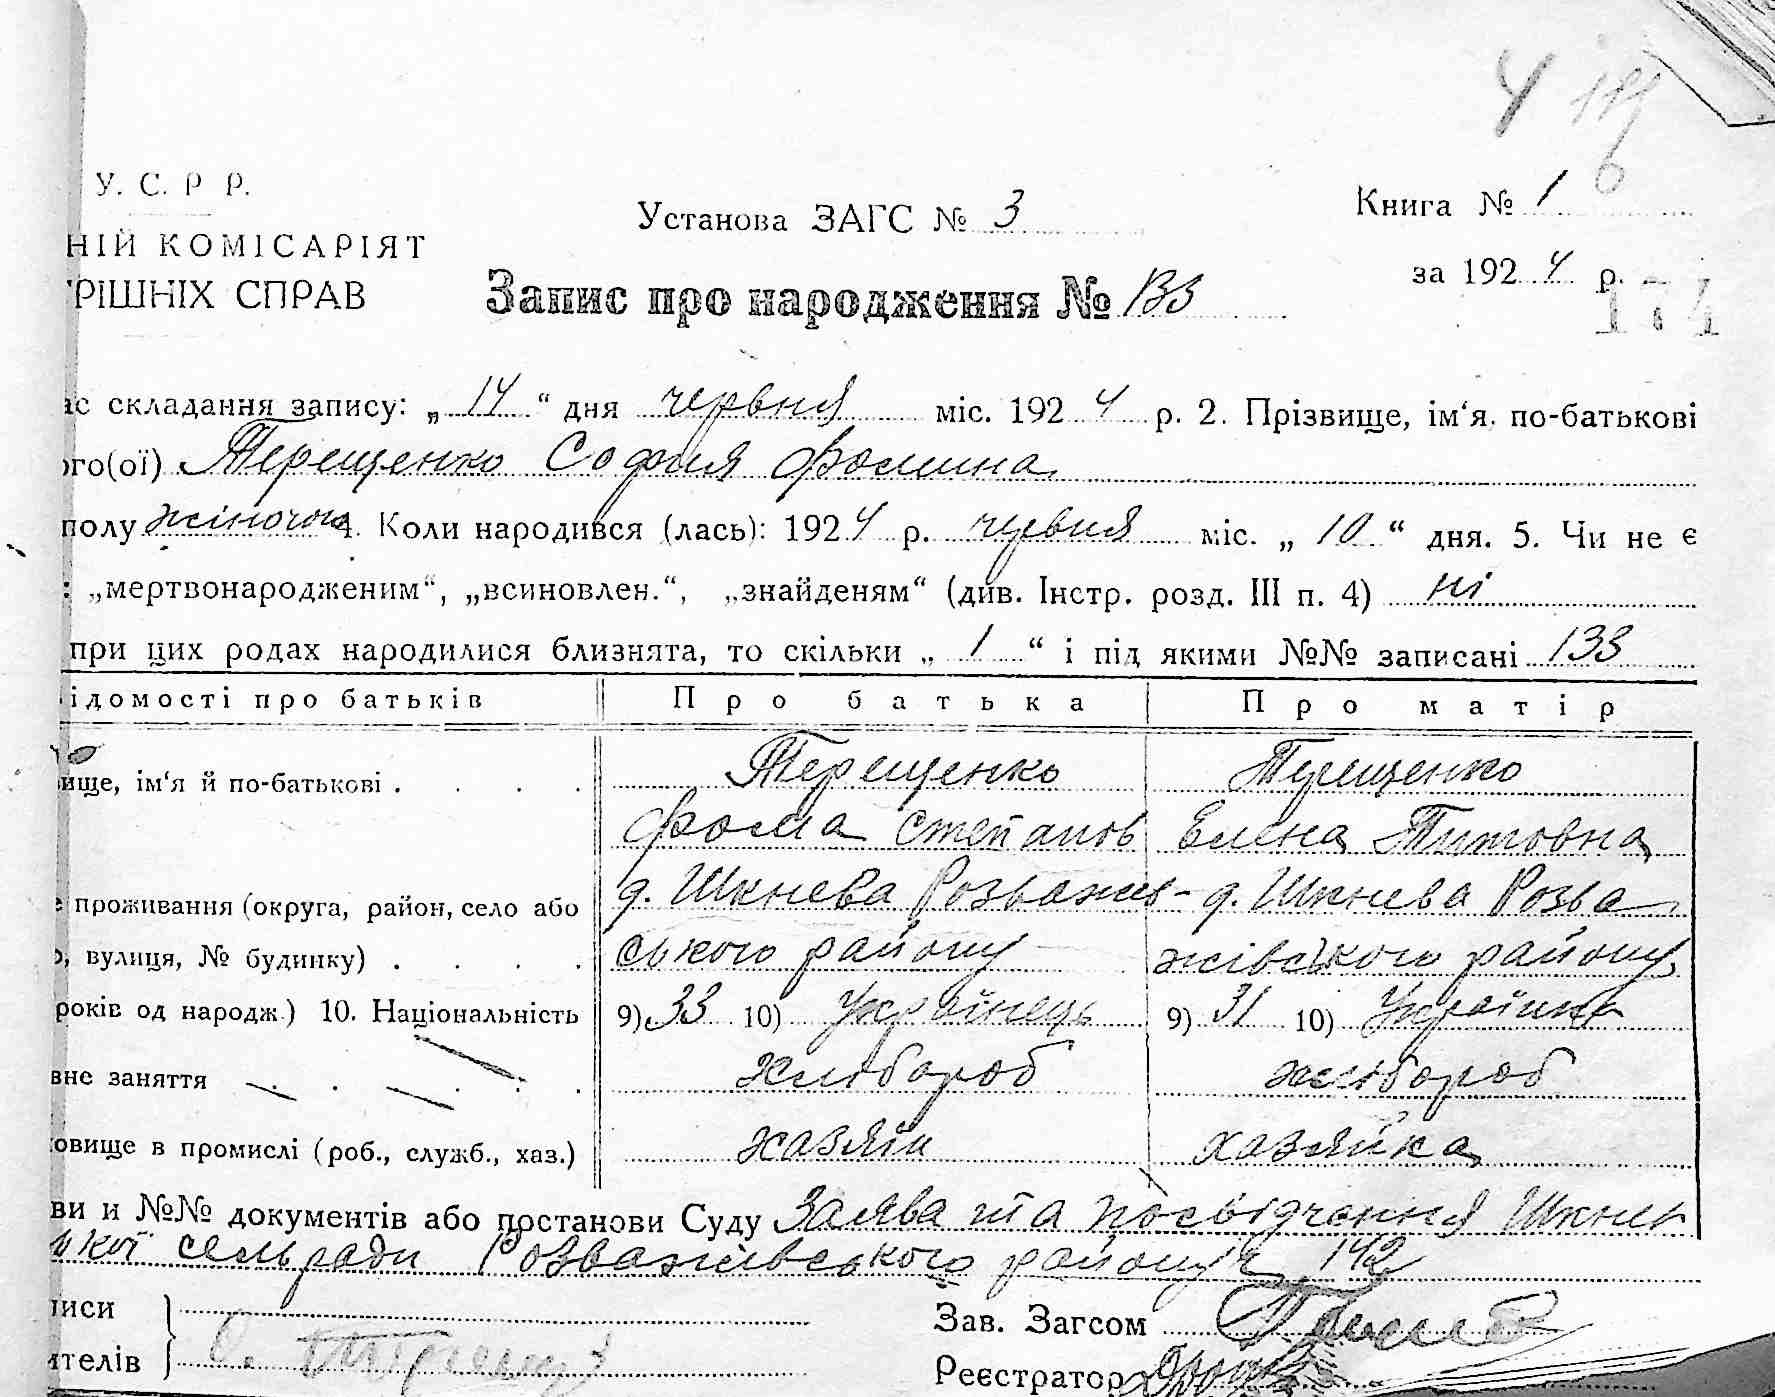 У. С. Р Р.
НІЙ КОМІСАРІЯТ
РІШНІХ СПРАВ
Установа ЗАГС № 3
Книга № 1
за 1924 р.
174
Запис про народження № 133
ас складання запису: „ 14 “ дня червня міс. 1924 р. 2. Прізвище, ім‘я, по-батькові
ого(ої) Терещенко София Фомина
полу жіночого 4. Коли народився (лась): 1924 р. червня міс. „ 10 “ дня. 5. Чи не є
: „мертвонародженим“, „всиновлен.“, „знайденям“ (див. Інстр. розд. III п. 4) ні
при цих родах народилися близнята, то скільки „ 1 “ і під якими №№ записані 133
ідомості про батьків Про батька Про матір
ище, ім‘я й по-батькові . . . . Терещенко Терещенко
Фома Степанов Елена Титовна
е проживання (округа, район, село або д. Шкнева Розважев- д. Шкнева Розва
о, вулиця, № будинку) . . . . ського району жівського району
років од народж.) 10. Національність 9) 33 10) Українець 9) 31 10) Українка
вне заняття . . . . хлібороб хлібороб
овище в промислі (роб., служб., хаз.) хазяїн хазяйка
ви и №№ документів або постанови Суду Заява та посвідчення Шкнев
ької сельради Розважівського району 142
иси
ителів
Зав. Загсом
Реєстратор